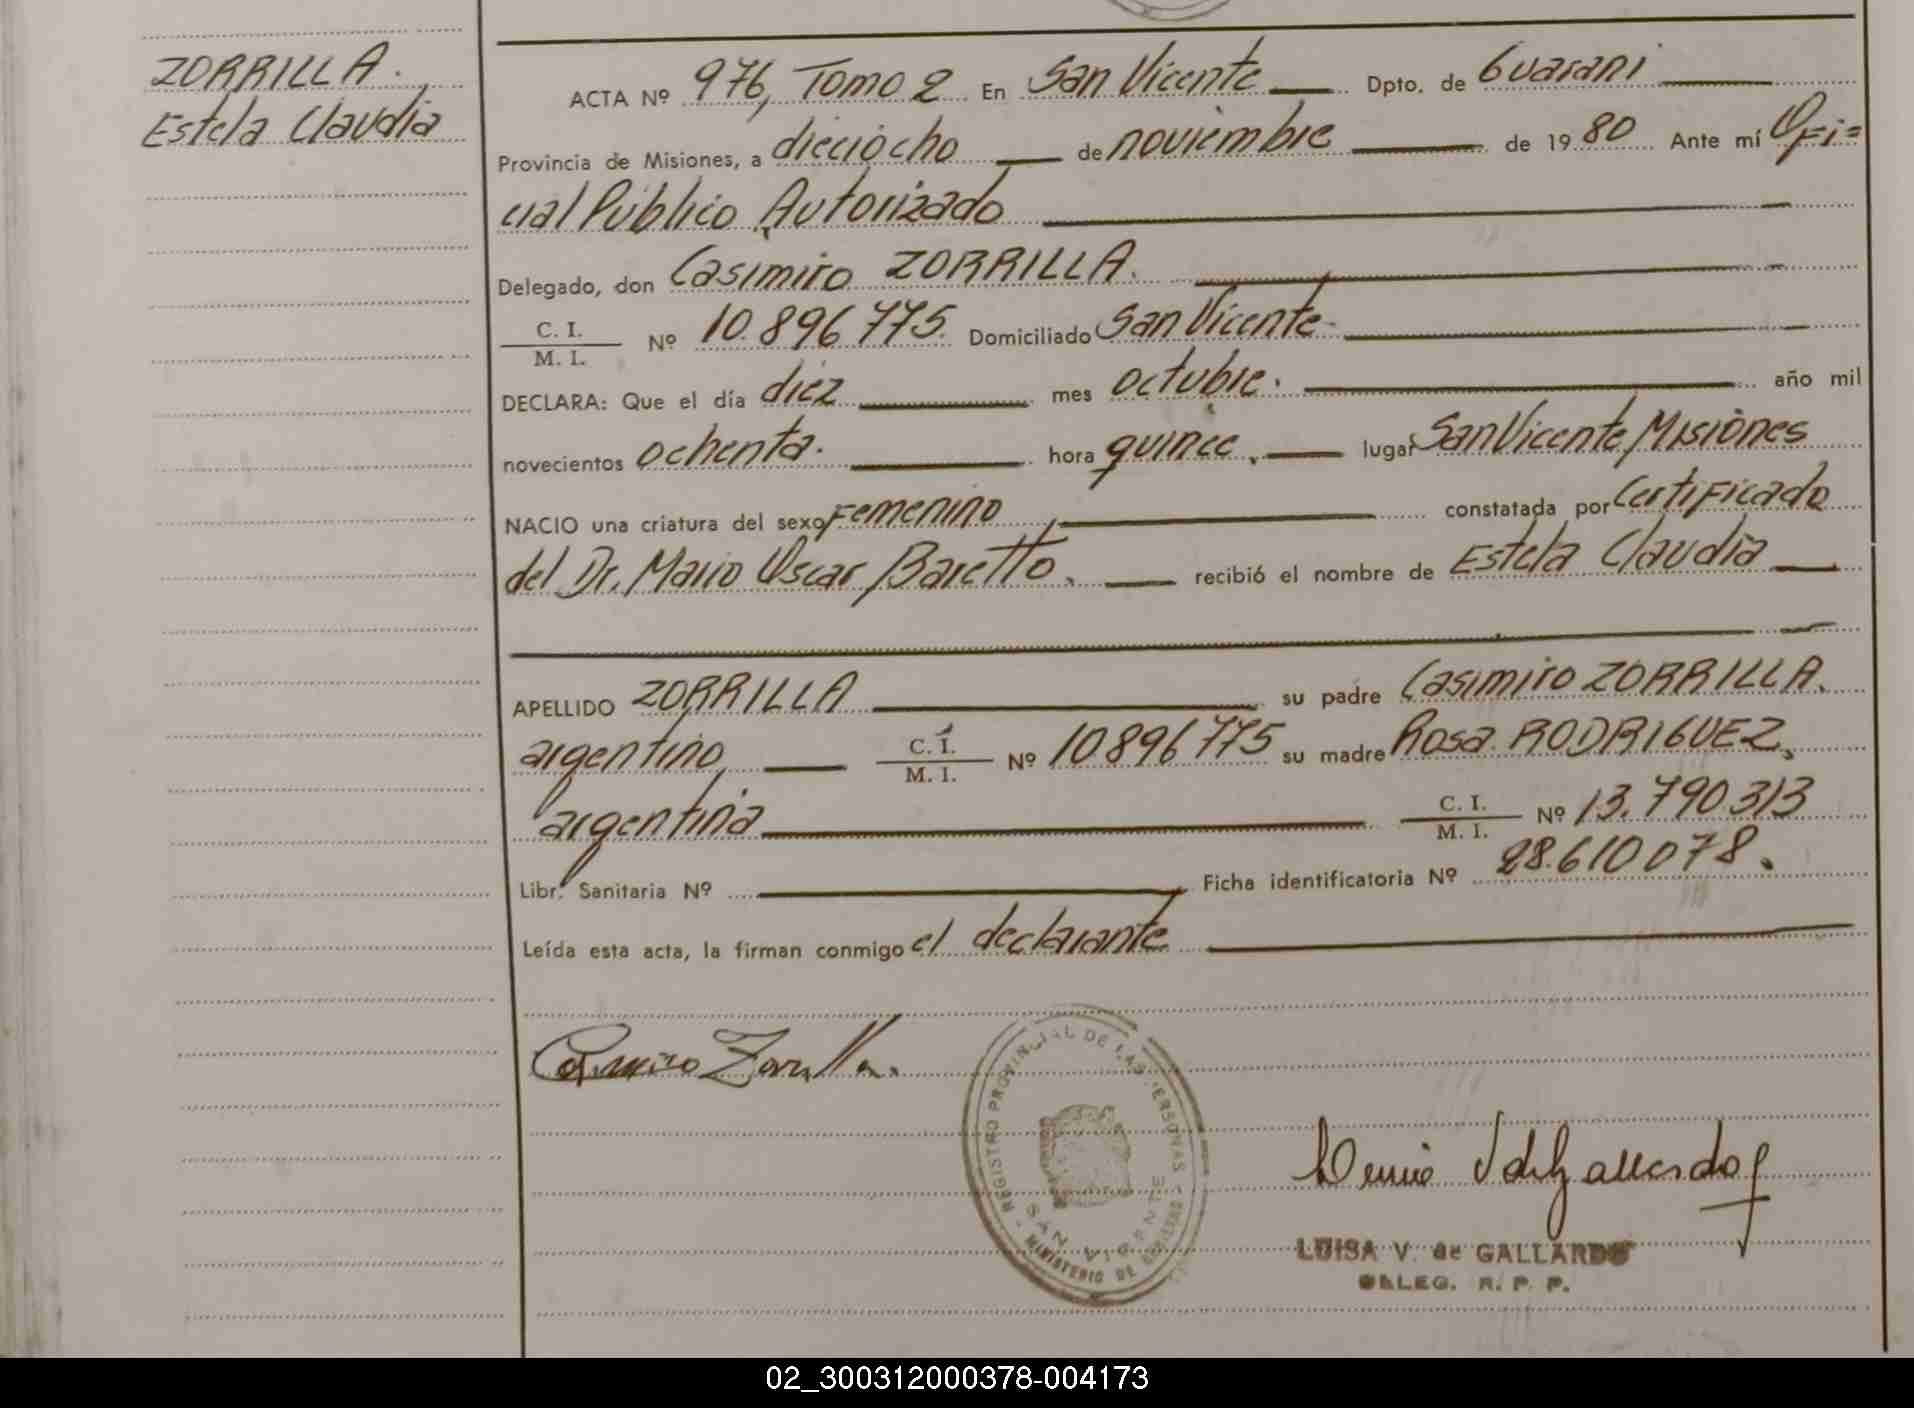 ZORRILLA.
Estela Claudia
ACTA Nº 976, Tomo 2 En San Vicente Dpto. de Guarani
Provincia de Misiones, a dieciocho de noviembre de 1980 Ante mí Ofi=
cial Público Autorizado
Delegado, don Casimiro ZORRILLA.
C. I.
M. I. Nº 10.896775. Domiciliado San Vicente
DECLARA: Que el día diez mes octubre. año mil
novecientos ochenta. hora quince. lugar San Vicente, Misiones
NACIO una criatura del sexo Femenino constatada por Certificado
del Dr. Mario Oscar Baretto. recibió el nombre de Estela Claudia
APELLIDO ZORRILLA su padre Casimiro ZORRILLA.
argentino, C. I.
M. I. Nº 10896775 su madre Rosa RODRIGUEZ,
argentina C. I.
M. I. Nº 13.790.313
Libr. Sanitaria Nº Ficha identificatoria Nº 28.610078.
Leída esta acta, la firman conmigo el declarante
Casimiro Zorrilla.
REGISTRO PROVINCIAL DE LAS PERSONAS
SAN VICENTE
MINISTERIO DE GOBIERNO
LUISA V. de GALLARDO
DELEG. R. P. P.
02_300312000378-004173